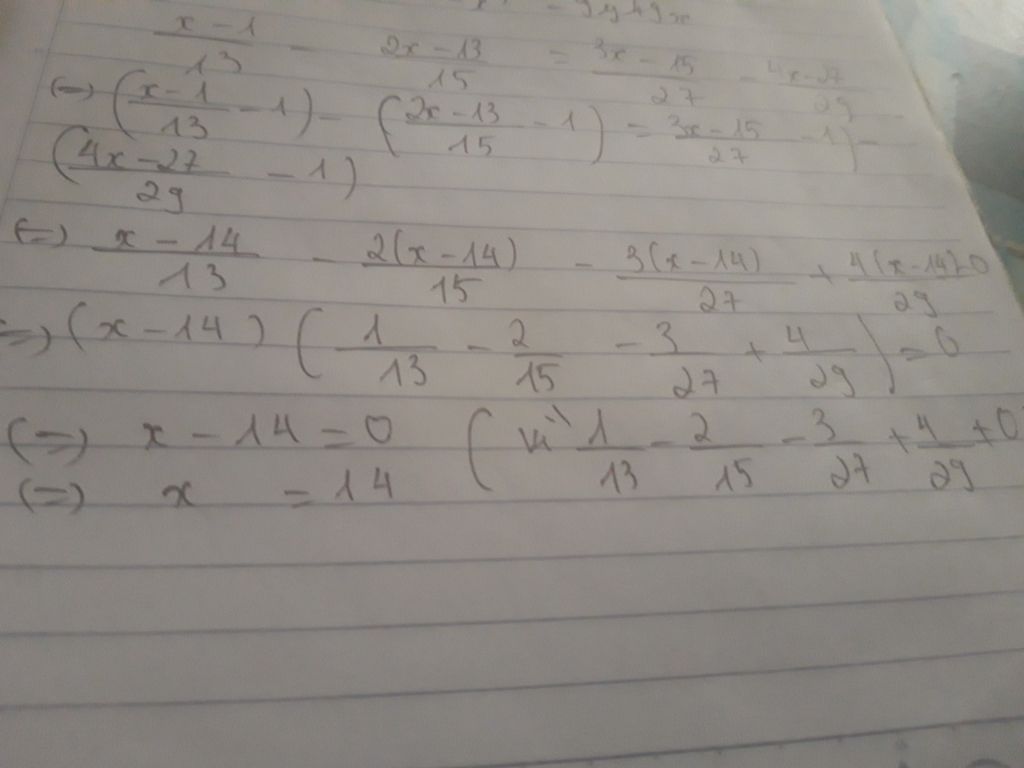 x-1/13 - 2x-13/15 = 3x-15/27 - 4x-27/29
(=) (x-1/13 - 1) - (2x-13/15 - 1) = 3x-15/27 - 1) -
(4x-27/29 - 1)
(=) x-14/13 - 2(x-14)/15 - 3(x-14)/27 + 4(x-14)/29 =0
=) (x-14) (1/13 - 2/15 - 3/27 + 4/29) = 0
(=) x-14=0 (vì 1/13 - 2/15 - 3/27 + 4/29 ≠ 0
(=) x =14